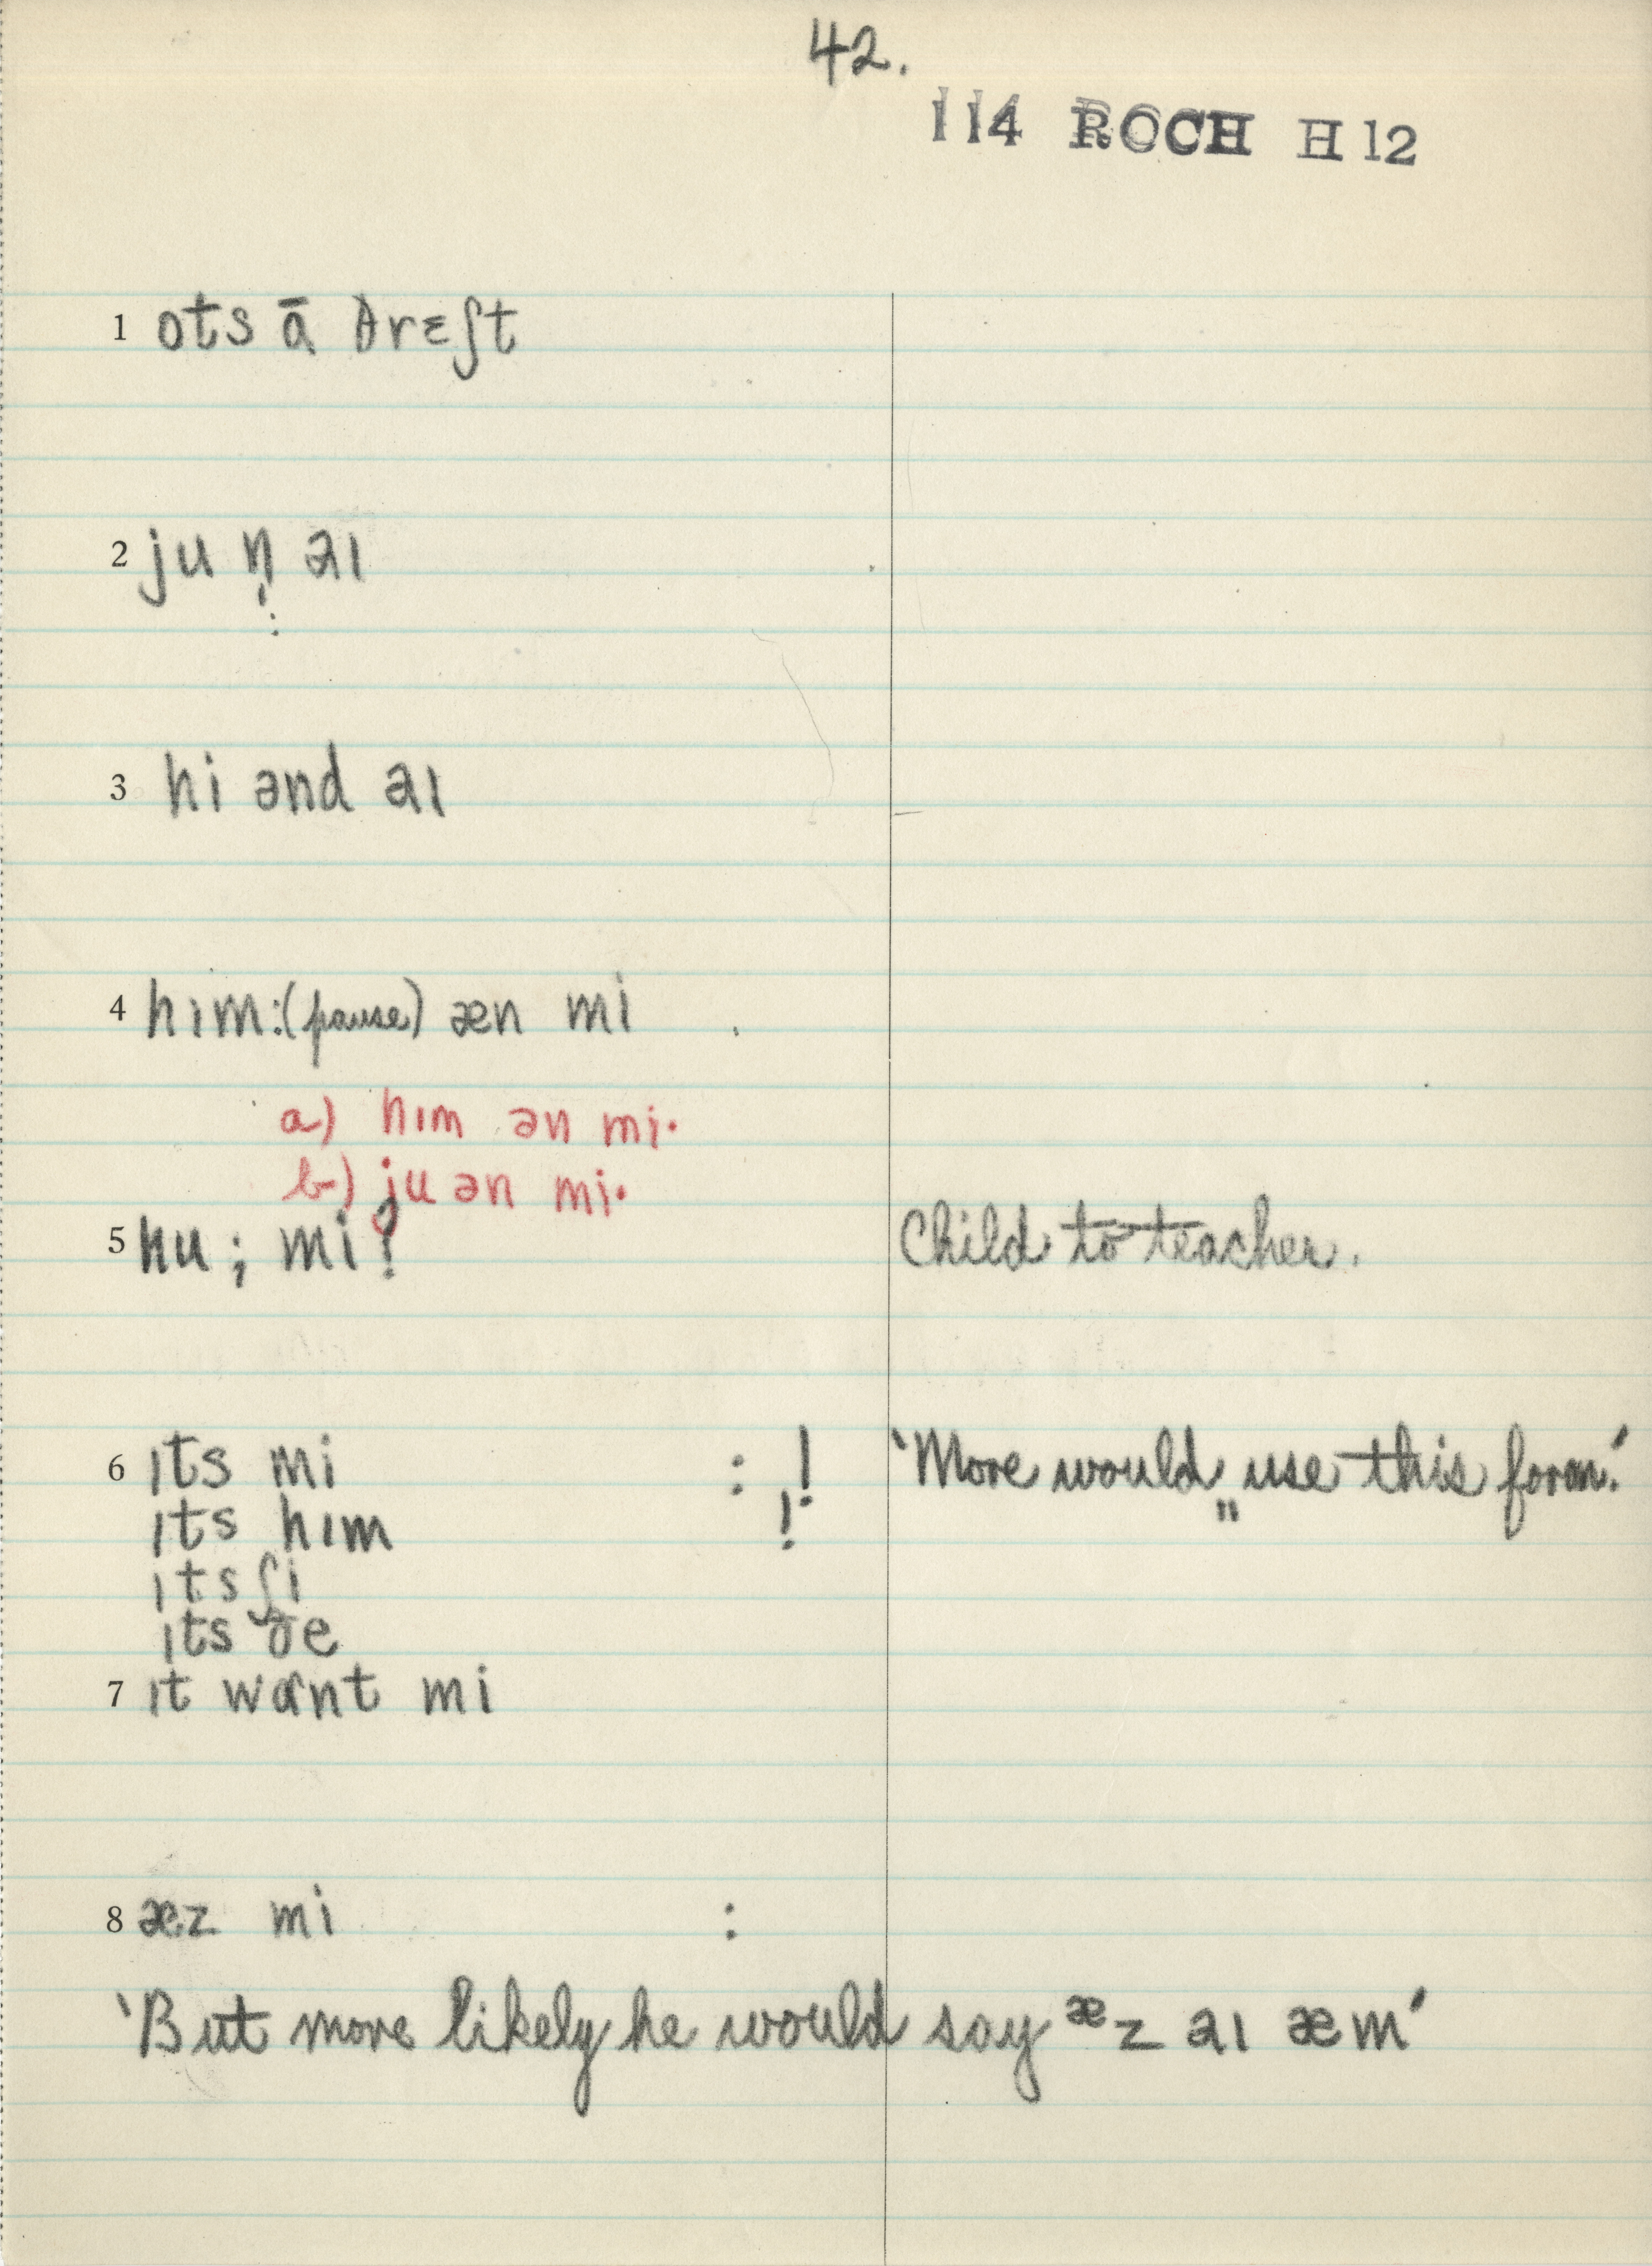 42.
114 ROCH H 12
1 ots ā θrɛʃt
2 ju n̩ aɪ
:
3 hi ənd aɪ
4 hɪm:(pause) æn mi
a) hɪm ən mi·
b) ju ən mi·
5 hu; mi? Child to teacher.
6 ɪts mi : ! 'More would use this form.'
ɪts hɪm !
ɪts ʃi
ɪts ðe
7 ɪt wɑnt mi
8 æz mi :
'But more likely he would say æz aɪ æm'